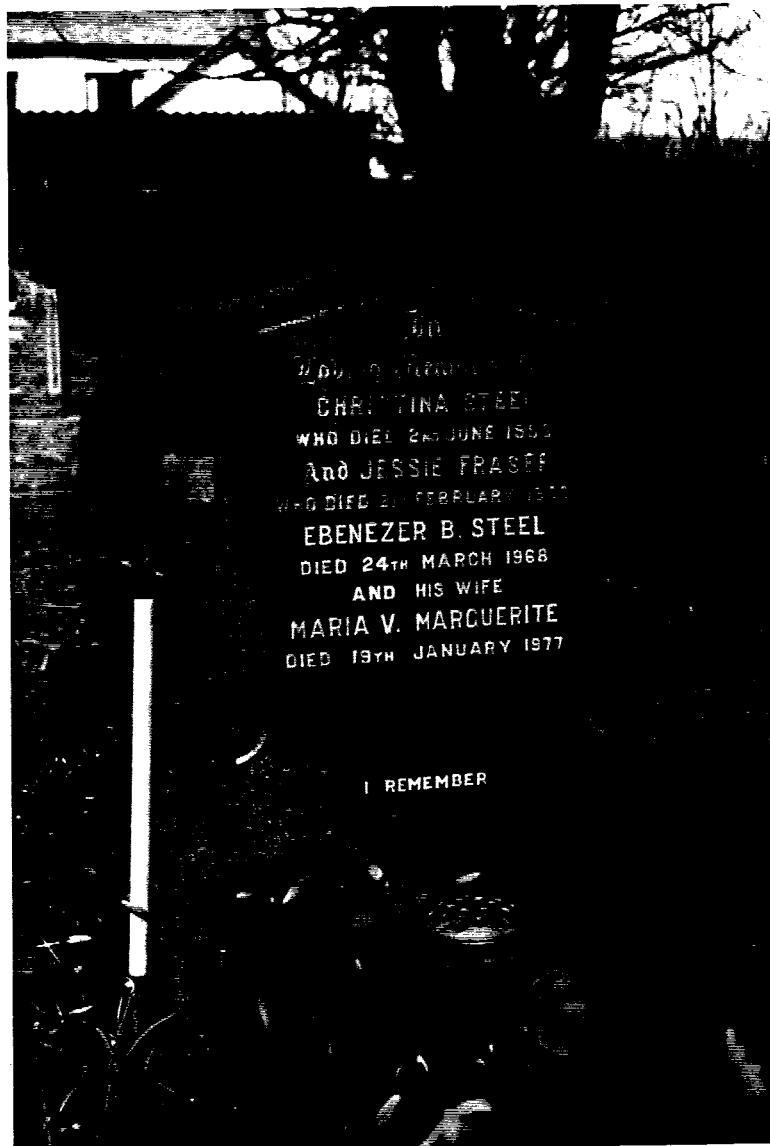 In
Loving Memory
CHRISTINA STEEL
WHO DIED JUNE
And JESSIE FRASER
WHO DIED FEBRUARY
EBENEZER B. STEEL
DIED 24TH MARCH 1968
AND HIS WIFE
MARIA V. MARGUERITE
DIED 19TH JANUARY 1977
I REMEMBER